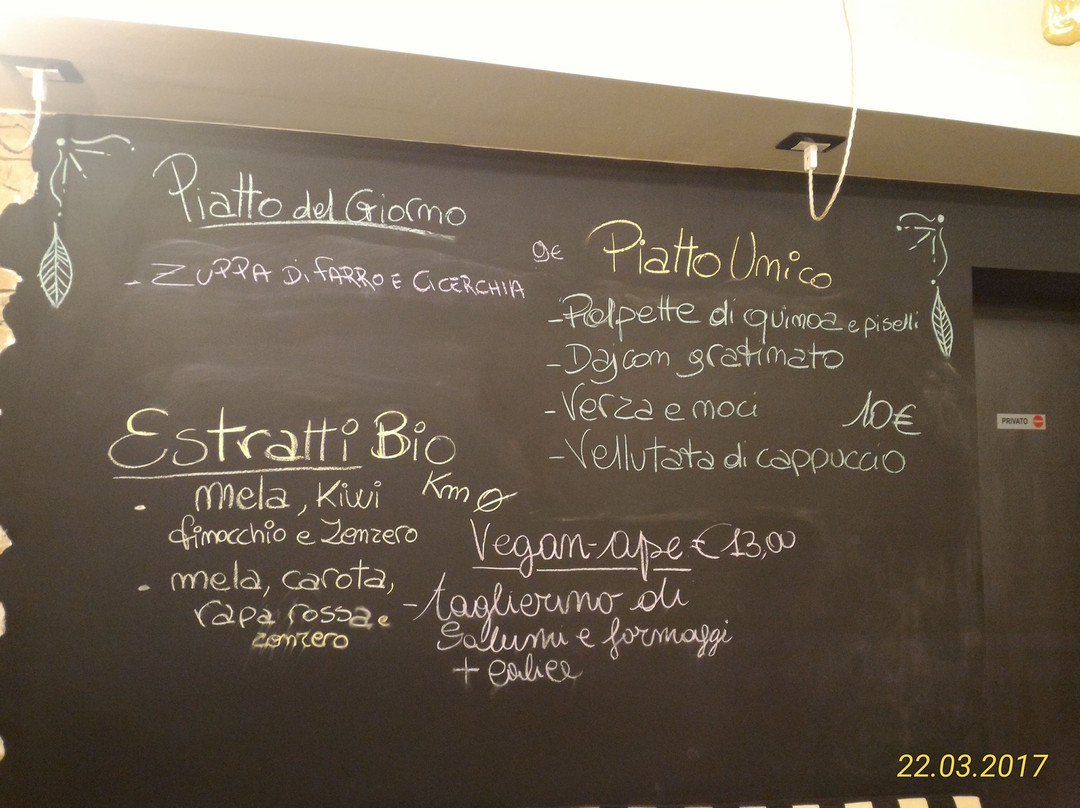 Piatto del Giorno
- ZUPPA DI FARRO E CICERCHIA 9€
Piatto Unico
- Polpette di quinoa e piselli
- Dajcon gratinato
- Verza e noci 10€
- Vellutata di cappuccio
Estratti Bio
Km 0
· mela, Kiwi
finocchio e Zenzero
· mela, carota,
rapa rossa e
zenzero
Vegan-ape € 13,00
- taglierino di
Salumi e formaggi
+ calice
PRIVATO
22.03.2017